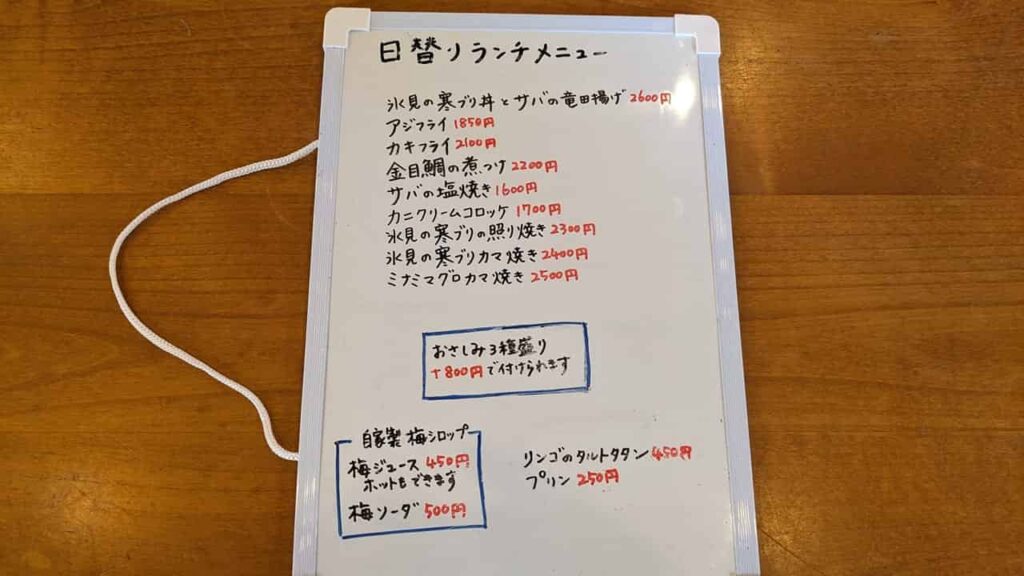 日替りランチメニュー
氷見の寒ブリ丼とサバの竜田揚げ 2600円
アジフライ 1850円
カキフライ 2100円
金目鯛の煮つけ 2200円
サバの塩焼き 1600円
カニクリームコロッケ 1700円
氷見の寒ブリの照り焼き 2300円
氷見の寒ブリカマ焼き 2400円
ミナミマグロカマ焼き 2500円
おさしみ3種盛り
+800円で付けられます
自家製 梅シロップ
梅ジュース 450円
ホットもできます
梅ソーダ 500円
リンゴのタルトタタン 450円
プリン 250円